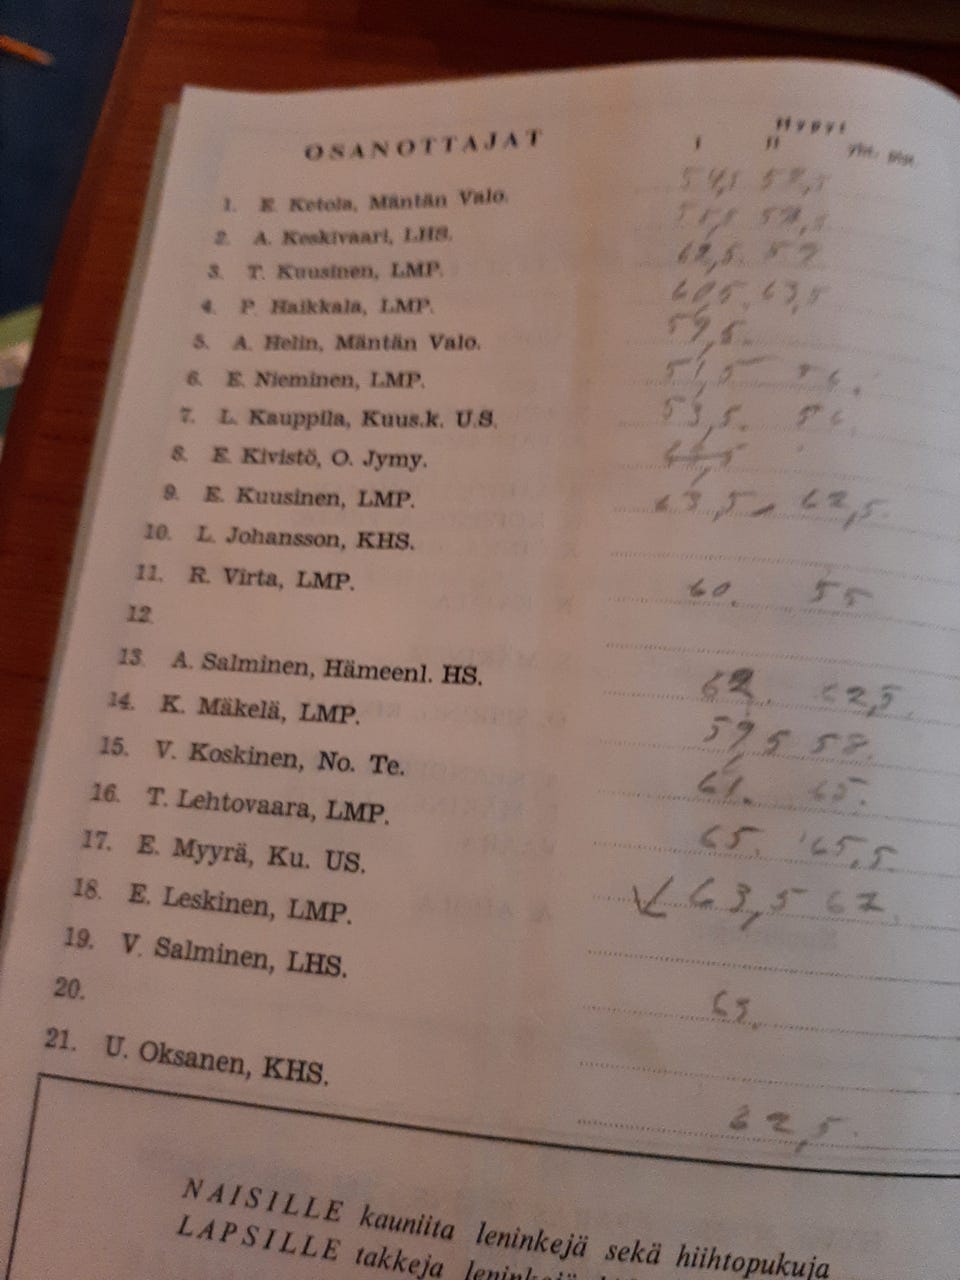 OSANOTTAJAT
Hypyt
I II yht. pist.
1. E. Ketola, Mäntän Valo. 54,5 57,5
2. A. Keskivaari, LHS. 58,5
3. T. Kuusinen, LMP. 62,5. 57
4. P. Haikkala, LMP. 60,5. 63,5
5. A. Helin, Mäntän Valo. 59,5.
6. E. Nieminen, LMP. 51,5
7. L. Kauppila, Kuus.k. U.S. 53,5. 56.
8. E. Kivistö, O. Jymy.
9. E. Kuusinen, LMP. 63,5. 62,5.
10. L. Johansson, KHS.
11. R. Virta, LMP. 60. 55
12.
13. A. Salminen, Hämeenl. HS. 62. 62,5.
14. K. Mäkelä, LMP. 59,5 58.
15. V. Koskinen, No. Te. 61. 65.
16. T. Lehtovaara, LMP. 65. 65,5.
17. E. Myyrä, Ku. US. 63,5 67.
18. E. Leskinen, LMP.
19. V. Salminen, LHS. 65.
20.
21. U. Oksanen, KHS. 62,5.
NAISILLE kauniita leninkejä sekä hiihtopukuja
LAPSILLE takkeja leninkejä